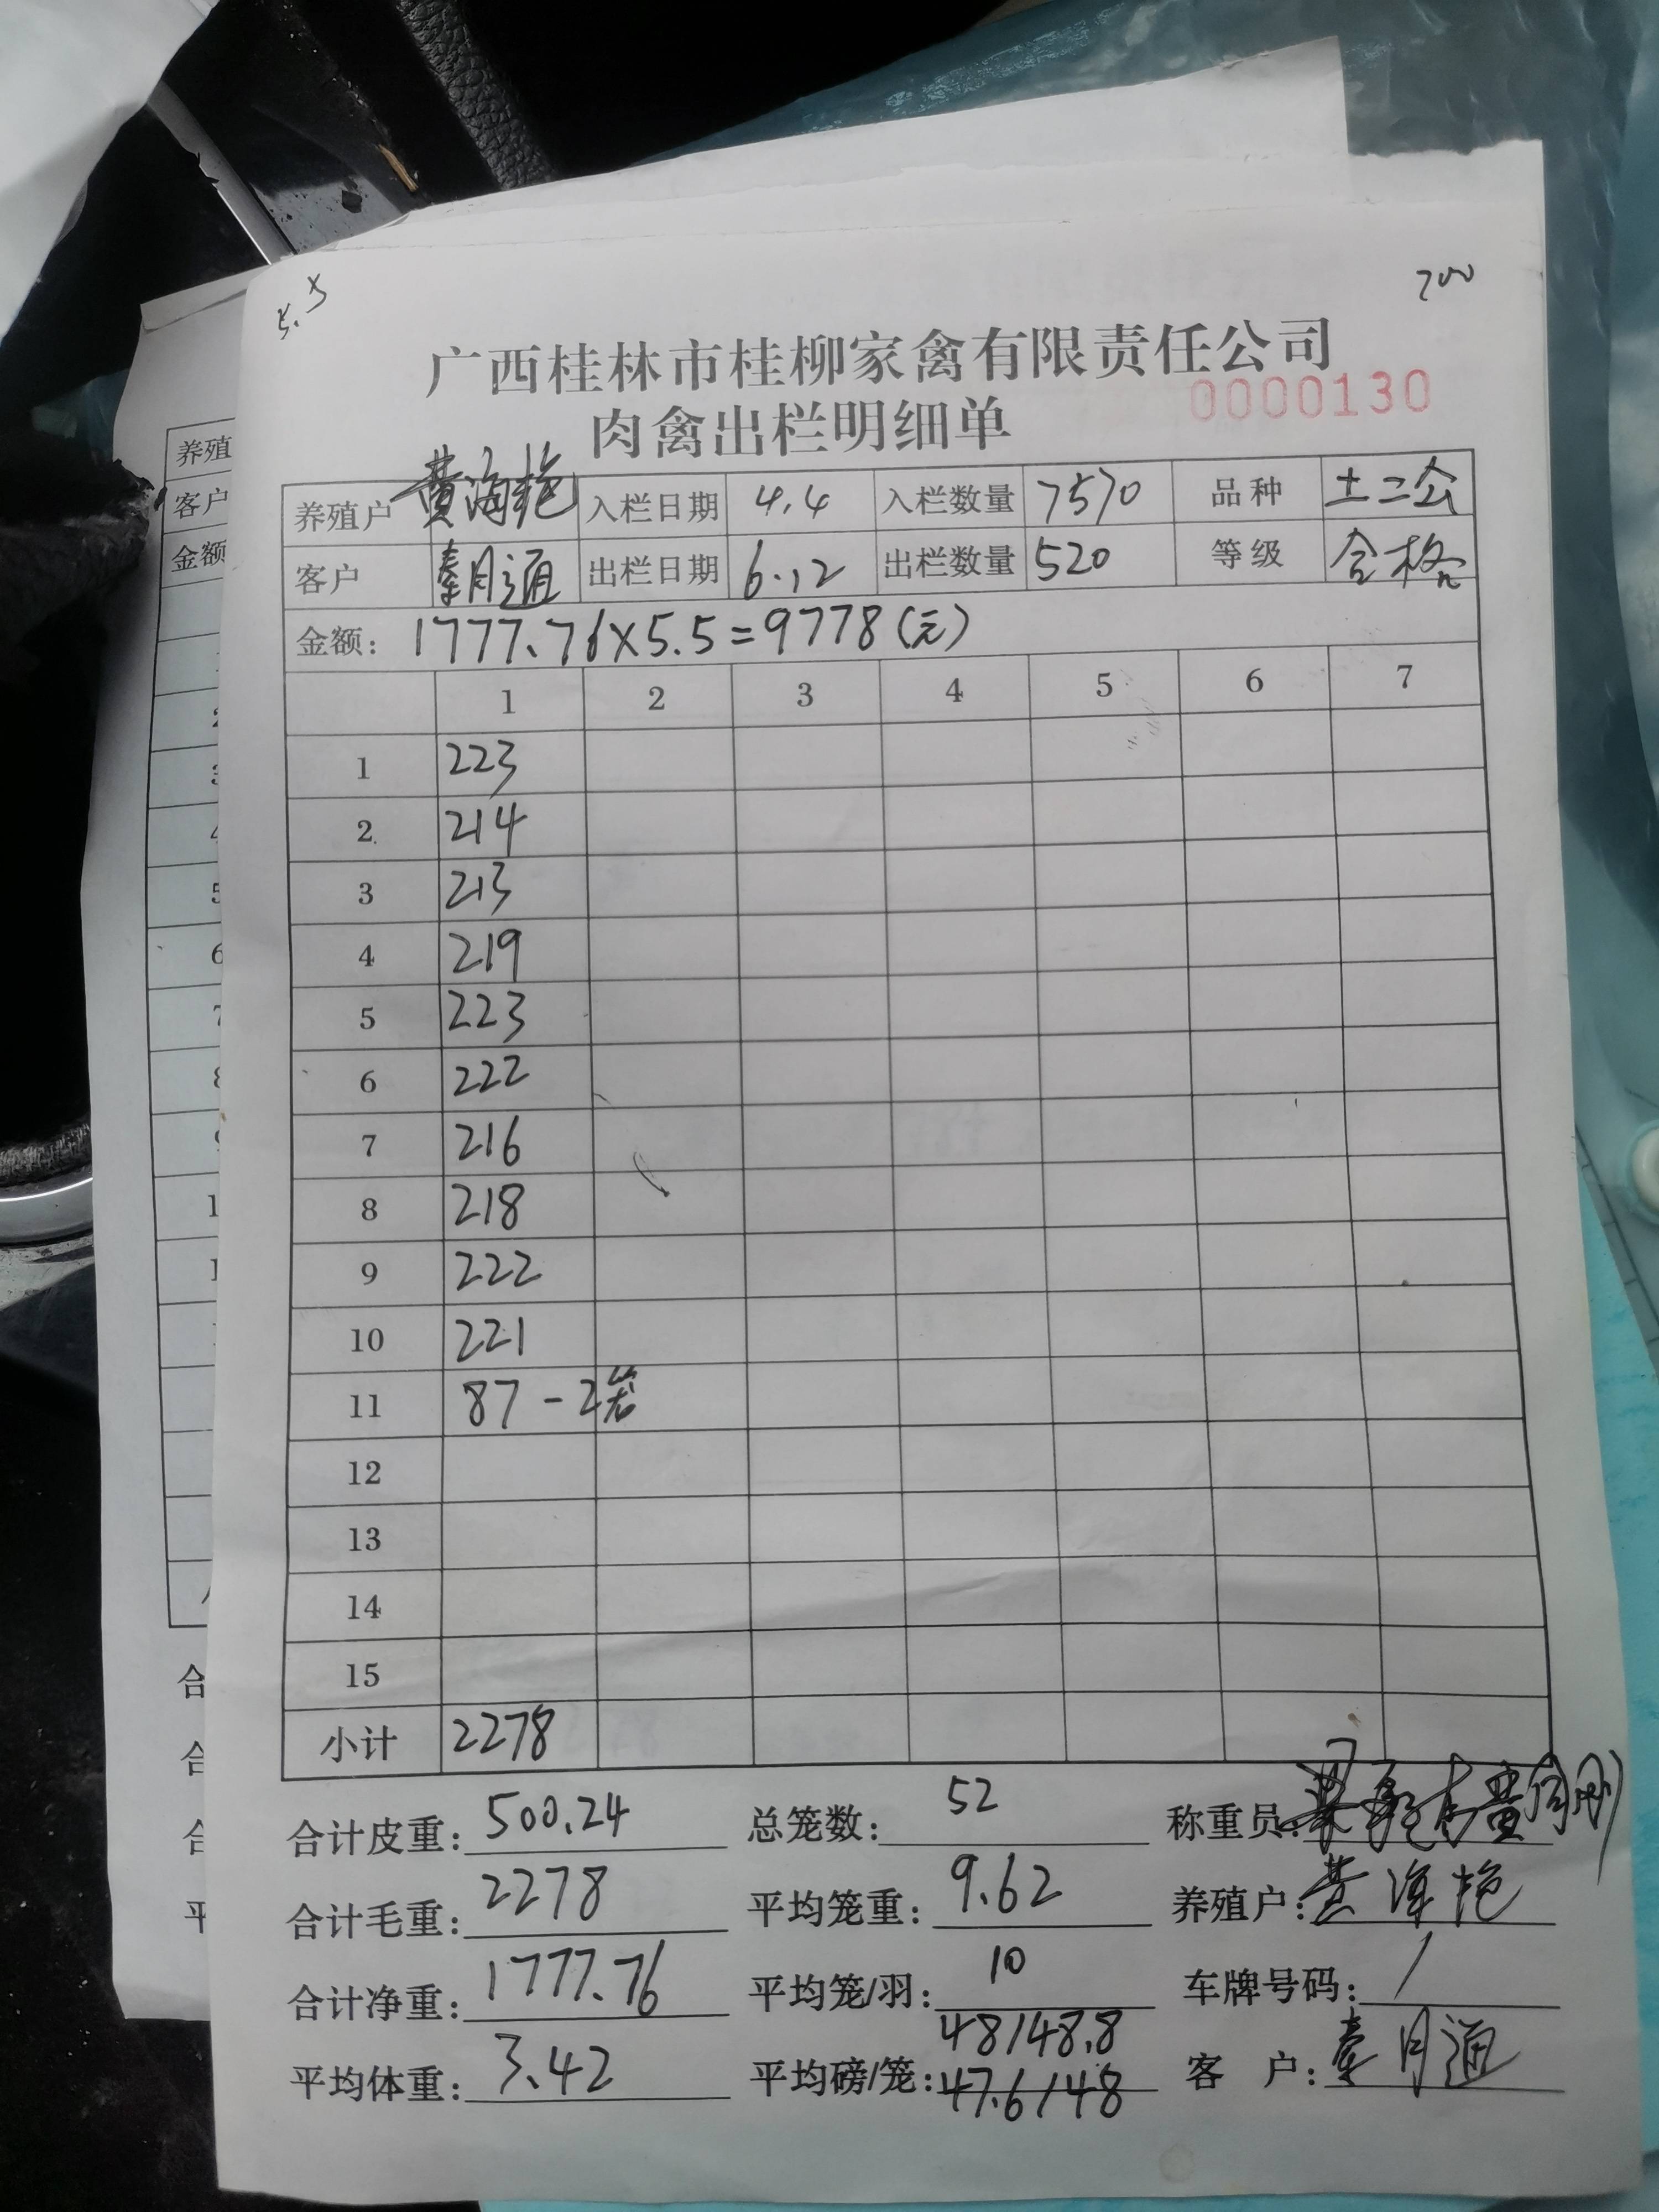 5.5
700
广西桂林市桂柳家禽有限责任公司
肉禽出栏明细单
0000130
养殖户 黄海艳 入栏日期 4.4 入栏数量 7570 品种 土二公
客户 秦月通 出栏日期 6.12 出栏数量 520 等级 合格
金额: 1777.76×5.5=9778(元)
1 2 3 4 5 6 7
1 223
2 214
3 213
4 219
5 223
6 222
7 216
8 218
9 222
10 221
11 87-2笼
12
13
14
15
小计 2278
合计皮重: 500.24 总笼数: 52 称重员:
合计毛重: 2278 平均笼重: 9.62 养殖户: 黄海艳
合计净重: 1777.76 平均笼/羽: 10 车牌号码: /
平均体重: 3.42 平均磅/笼: 48/48.8 47.6/48 客 户: 秦月通
养殖
客户
金额